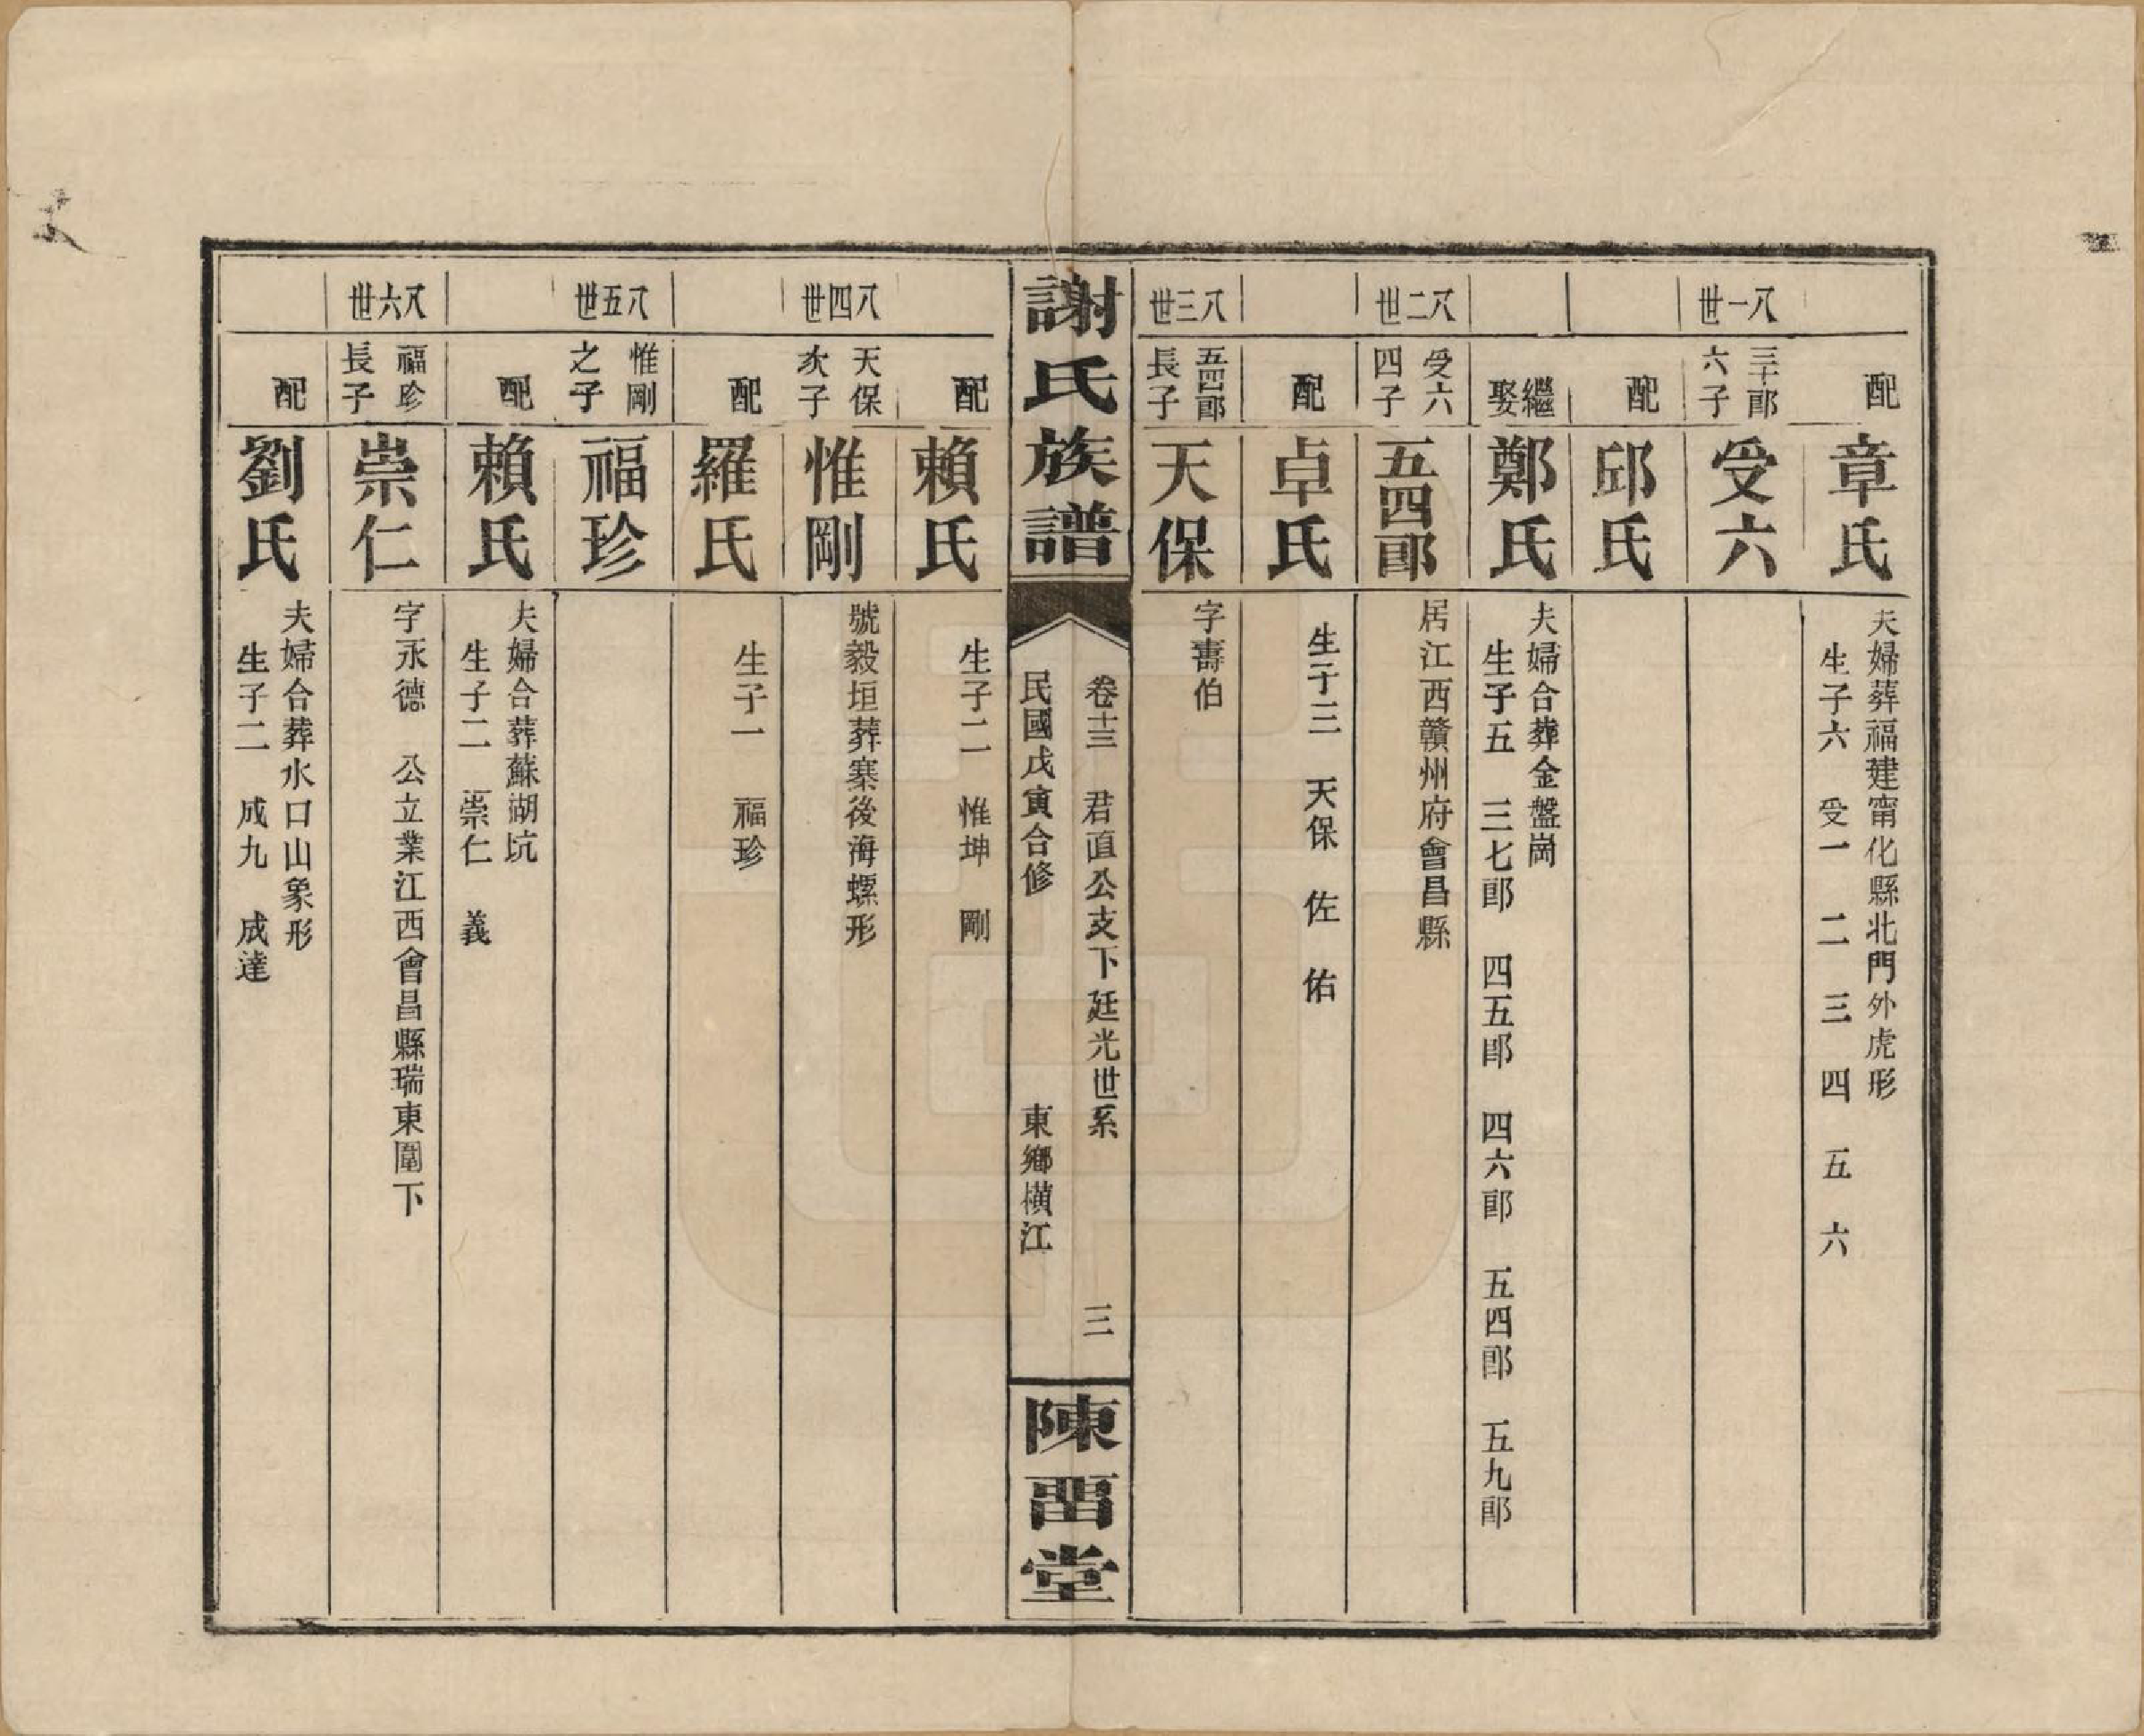 配 章氏 夫婦葬福建甯化縣北門外虎形
生子六 受一 二 三 四 五 六
八一世 三十郎六子 受六
配 邱氏
繼娶 鄭氏 夫婦合葬金盤崗
生子五 三七郎 四五郎 四六郎 五四郎 五九郎
八二世 受六四子 五四郎 居江西贛州府會昌縣
配 卓氏 生子三 天保 佐 佑
八三世 五四郎長子 天保 字壽伯
謝氏族譜
卷十三 君直公支下廷光世系 三
民國戊寅合修 東鄉橫江
陳畱堂
配 賴氏 生子二 惟坤 剛
八四世 天保次子 惟剛 號毅垣葬寨後海螺形
配 羅氏 生子一 福珍
八五世 惟剛之子 福珍
配 賴氏 夫婦合葬蘇湖坑
生子二 崇仁 義
八六世 福珍長子 崇仁 字永德 公立業江西會昌縣瑞東圍下
配 劉氏 夫婦合葬水口山象形
生子二 成九 成達